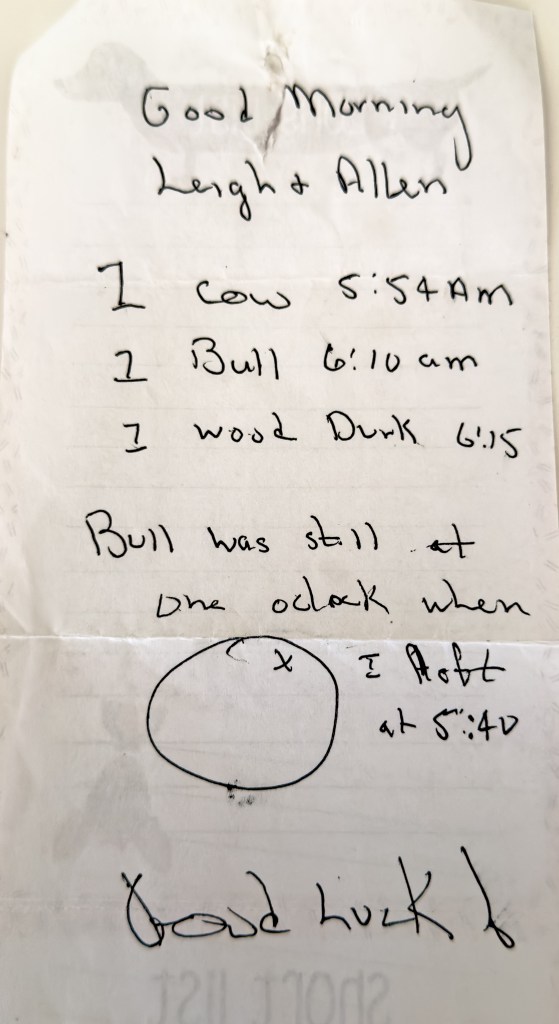 Good Morning
Leigh & Allen
1 Cow 5:54 AM
1 Bull 6:10 am
1 wood Duck 6:15
Bull was still at
one oclock when
x I left
at 5:40
Good Luck !
short list